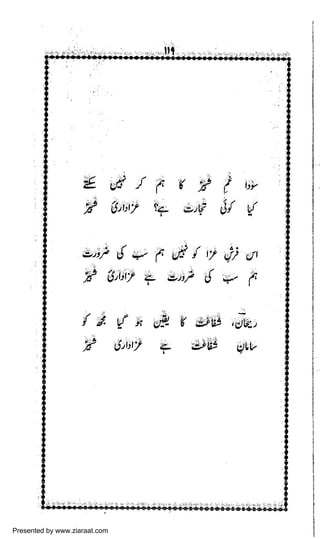 ۱۱۹
سودا غمِ شبیرؑ کا ہم کر نہیں سکتے
کیا کوئی تجارت ہے؟ عزاداریٔ شبیرؑ
اس فرشِ عزا کو نہیں ہم سب کی ضرورت
ہم سب کی ضرورت ہے عزاداریٔ شبیرؑ
ریحان، شفاعت کا یقیں ہو گیا مجھ کو
سامانِ شفاعت ہے عزاداری شبیرؑ
Presented by www.ziaraat.com